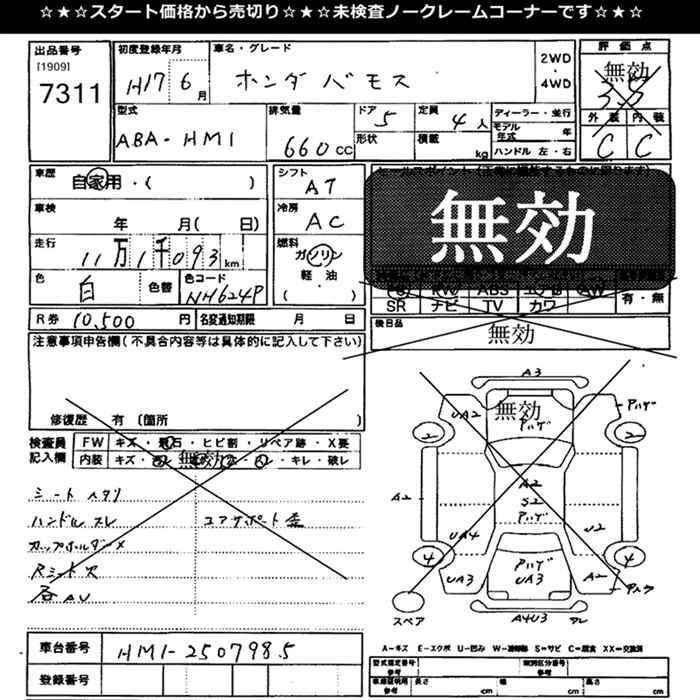 ☆★☆スタート価格から売切り☆★☆未検査ノークレームコーナーです☆★☆
出品番号
[1909]
7311
初度登録年月
H17 6月
車名・グレード
ホンダ バモス
2WD
・
4WD
評価点
無効
3.5
外装 内装
C C
型式
ABA-HM1
排気量
660cc
ドア
5
形状
定員
4人
積載
kg
ディーラー・並行
モデル年式 年
ハンドル 左・右
車歴
自家用・( )
車検
年 月( 日)
走行
11万1千093km
色
白
色替
色コード
NH624P
シフト
AT
冷房
AC
燃料
ガソリン
軽油
( )
無効
PS PW ABS エアB AW
SR ナビ TV カワ
有・無
R券 10,500円
名変通知期限 月 日
後日品
無効
注意事項申告欄(不具合内容等は具体的に記入して下さい)
修復歴 有(箇所 )
検査員記入欄
FW キズ・飛石・ヒビ割・リペア跡・X要
内装 キズ・
無効
キレ・破レ
シートヘタリ
ハンドルスレ
コアサポート歪
カップホルダーダメ
Rシート欠
各AU
A3
UA2
無効
アハゲ
アハゲ
2
2
A2
A2
S2
アハゲ
UA4
U2
4
4
UA3
アハゲ
UA3
A2
スペア
A4U3
A-キズ E-エクボ U-凹み W-補修跡 S=サビ C=腐食 XX=交換済
車台番号
HM1-2507985
登録番号
型式指定番号
参考
類別区分番号
参考
車庫証明用
参考
長さ cm
幅 cm
高さ cm